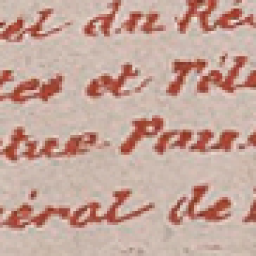 el du Ré
tes et Tél
tue Pau
néral de